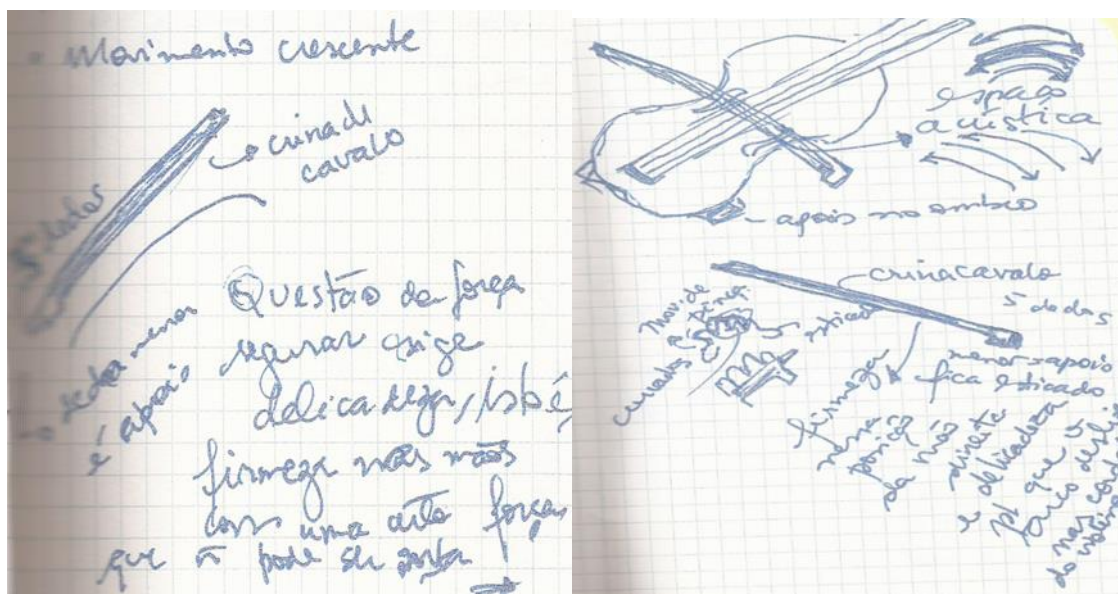 Movimento crescente
crina de
cavalo
5 dedos
dedo menor
é apoio
Questão de força
segurar exige
delicadeza, isto é,
firmeza nas mãos
com uma certa força
que ñ pode ser
espaço
acústica
apoio no ombro
crina cavalo
5 dedos
esticado
curvados
menor apoio
fica esticado
firmeza
numa
posição
da mão
direita
e delicadeza
p/ que o
arco desli
nas corda
do violino